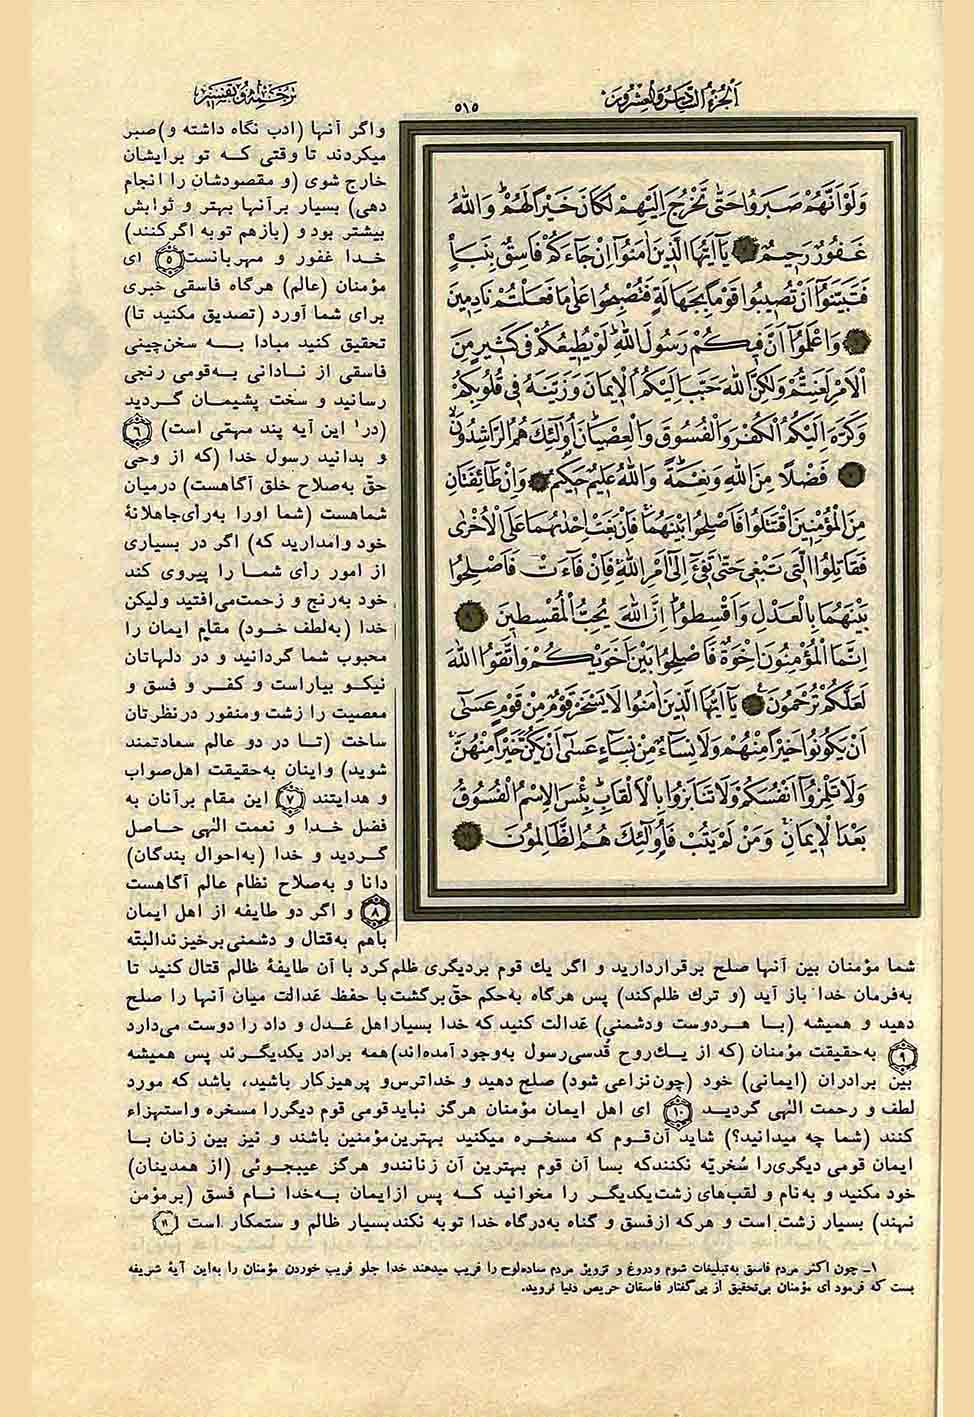 الجزء السادس والعشرون
۵۱۵
ترجمه و تفسیر
وَلَوْ اَنَّهُمْ صَبَرُوا حَتّٰى تَخْرُجَ اِلَيْهِمْ لَكَانَ خَيْراً لَهُمْ وَاللّٰهُ
غَفُورٌ رَحِيمٌ يَآ اَيُّهَا الَّذِينَ اٰمَنُوآ اِنْ جَآءَكُمْ فَاسِقٌ بِنَبَأٍ
فَتَبَيَّنُوآ اَنْ تُصِيبُوا قَوْماً بِجَهَالَةٍ فَتُصْبِحُوا عَلٰى مَا فَعَلْتُمْ نَادِمِينَ
وَاعْلَمُوآ اَنَّ فِيكُمْ رَسُولَ اللّٰهِ لَوْ يُطِيعُكُمْ فِى كَثِيرٍ مِنَ
الْاَمْرِ لَعَنِتُّمْ وَلٰكِنَّ اللّٰهَ حَبَّبَ اِلَيْكُمُ الْاِيمَانَ وَزَيَّنَهُ فِى قُلُوبِكُمْ
وَكَرَّهَ اِلَيْكُمُ الْكُفْرَ وَالْفُسُوقَ وَالْعِصْيَانَ اُولٰٓئِكَ هُمُ الرَّاشِدُونَ
فَضْلاً مِنَ اللّٰهِ وَنِعْمَةً وَاللّٰهُ عَلِيمٌ حَكِيمٌ وَاِنْ طَآئِفَتَانِ
مِنَ الْمُؤْمِنِينَ اقْتَتَلُوا فَاَصْلِحُوا بَيْنَهُمَا فَاِنْ بَغَتْ اِحْدٰيهُمَا عَلَى الْاُخْرٰى
فَقَاتِلُوا الَّتِى تَبْغِى حَتّٰى تَفِىٓءَ اِلٰٓى اَمْرِ اللّٰهِ فَاِنْ فَآءَتْ فَاَصْلِحُوا
بَيْنَهُمَا بِالْعَدْلِ وَاَقْسِطُوا اِنَّ اللّٰهَ يُحِبُّ الْمُقْسِطِينَ
اِنَّمَا الْمُؤْمِنُونَ اِخْوَةٌ فَاَصْلِحُوا بَيْنَ اَخَوَيْكُمْ وَاتَّقُوا اللّٰهَ
لَعَلَّكُمْ تُرْحَمُونَ يَآ اَيُّهَا الَّذِينَ اٰمَنُوا لَا يَسْخَرْ قَوْمٌ مِنْ قَوْمٍ عَسٰٓى
اَنْ يَكُونُوا خَيْراً مِنْهُمْ وَلَا نِسَآءٌ مِنْ نِسَآءٍ عَسٰٓى اَنْ يَكُنَّ خَيْراً مِنْهُنَّ
وَلَا تَلْمِزُوآ اَنْفُسَكُمْ وَلَا تَنَابَزُوا بِالْاَلْقَابِ بِئْسَ الْاِسْمُ الْفُسُوقُ
بَعْدَ الْاِيمَانِ وَمَنْ لَمْ يَتُبْ فَاُولٰٓئِكَ هُمُ الظَّالِمُونَ
واگر آنها (ادب نگاه داشته و) صبر
میکردند تا وقتی که تو برایشان
خارج شوی (و مقصودشان را انجام
دهی) بسیار برآنها بهتر و ثوابش
بیشتر بود و (بازهم توبه اگرکنند)
خدا غفور و مهربانست ۵ ای
مؤمنان (عالم) هرگاه فاسقی خبری
برای شما آورد (تصدیق مکنید تا)
تحقیق کنید مبادا به سخن‌چینی
فاسقی از نادانی به‌قومی رنجی
رسانید و سخت پشیمان گردید
(در۱ این آیه پند مهتی است) ۶
و بدانید رسول خدا (که از وحی
حقّ به‌صلاح خلق آگاهست) درمیان
شماهست (شما اورا به‌رأی‌جاهلانهٔ
خود وامدارید که) اگر در بسیاری
از امور رأی شما را پیروی کند
خود به‌رنج و زحمت‌می‌افتید ولیکن
خدا (به‌لطف خود) مقام ایمان را
محبوب شما گردانید و در دلهاتان
نیکو بیاراست و کفر و فسق و
معصیت را زشت ومنفور درنظرتان
ساخت (تا در دو عالم سعادتمند
شوید) واینان به‌حقیقت اهل‌صواب
و هدایتند ۷ این مقام برآنان به
فضل خدا و نعمت الهی حاصل
گردید و خدا (به‌احوال بندگان)
دانا و به‌صلاح نظام عالم آگاهست
۸ و اگر دو طایفه از اهل ایمان
باهم به‌قتال و دشمنی‌برخیزندالبتّه
شما مؤمنان بین آنها صلح برقراردارید و اگر یك قوم بردیگری ظلم‌کرد با آن طایفهٔ ظالم قتال کنید تا
به‌فرمان خدا باز آید (و ترك ظلم‌کند) پس هرگاه به‌حکم حقّ‌برگشت‌با حفظ عدالت میان آنها را صلح
دهید و همیشه (با هردوست ودشمنی) عدالت کنید که خدا بسیاراهل عَدل و داد را دوست می‌دارد
۹ به‌حقیقت مؤمنان (که از یك‌روح قُدسی‌رسول به‌وجود آمده‌اند)همه برادر یکدیگرند پس همیشه
بین برادران (ایمانی) خود (چون‌نزاعی شود) صلح دهید و خداترس‌و پرهیزکار باشید، باشد که مورد
لطف و رحمت الهی گردید ۱۰ ای اهل ایمان مؤمنان هرگز نبایدقومی قوم دیگررا مسخره واستهزاء
کنند (شما چه میدانید؟) شاید آن‌قوم که مسخره میکنید بهترین‌مؤمنین باشند و نیز بین زنان با
ایمان قومی دیگری‌را سُخریّه نکنندکه بسا آن قوم بهترین آن زنانندو هرگز عیبجوئی (از همدینان)
خود مکنید و به‌نام و لقب‌های زشت‌یکدیگر را مخوانید که پس ازایمان به‌خدا نام فسق (برمؤمن
نهند) بسیار زشت است و هرکه ازفسق و گناه به‌درگاه خدا توبه نکندبسیار ظالم و ستمکار است ۱۱
۱ـ چون اکثر مردم فاسق به‌تبلیغات شوم ودروغ و تزویر مردم ساده‌لوح را فریب میدهند خدا جلو فریب خوردن مؤمنان را به‌این آیهٔ شریفه
بست که فرمود ای مؤمنان بی‌تحقیق از پی‌گفتار فاسقان حریص دنیا نروید.